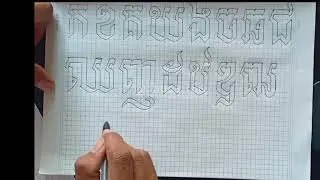 ក ខ គ ឃ ង ច ឆ ជ
ឈ ញ ដ ឋ ឌ ឍ